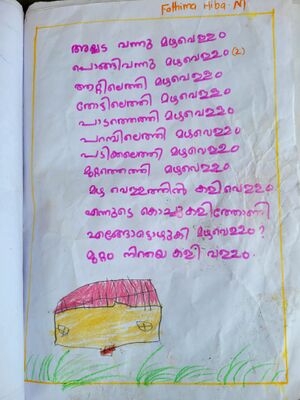 Fathima Hiba. N
അല്ലട വന്നു മഴവെള്ളം
പൊങ്ങിവന്നു മഴവെള്ളം (2)
ആറ്റിലെത്തി മഴവെള്ളം
തോട്ടിലെത്തി മഴവെള്ളം
പാടത്തെത്തി മഴവെള്ളം
പറമ്പിലെത്തി മഴവെള്ളം
പടിക്കലെത്തി മഴവെള്ളം
മുറ്റത്തെത്തി മഴവെള്ളം
മഴ വെള്ളത്തിൽ കളിവെള്ളം
എന്നുടെ കൊച്ചു കളിത്തോണി
എങ്ങോട്ടൊഴുകി മഴവെള്ളം ?
മുറ്റം നിറയെ കളി വള്ളം.